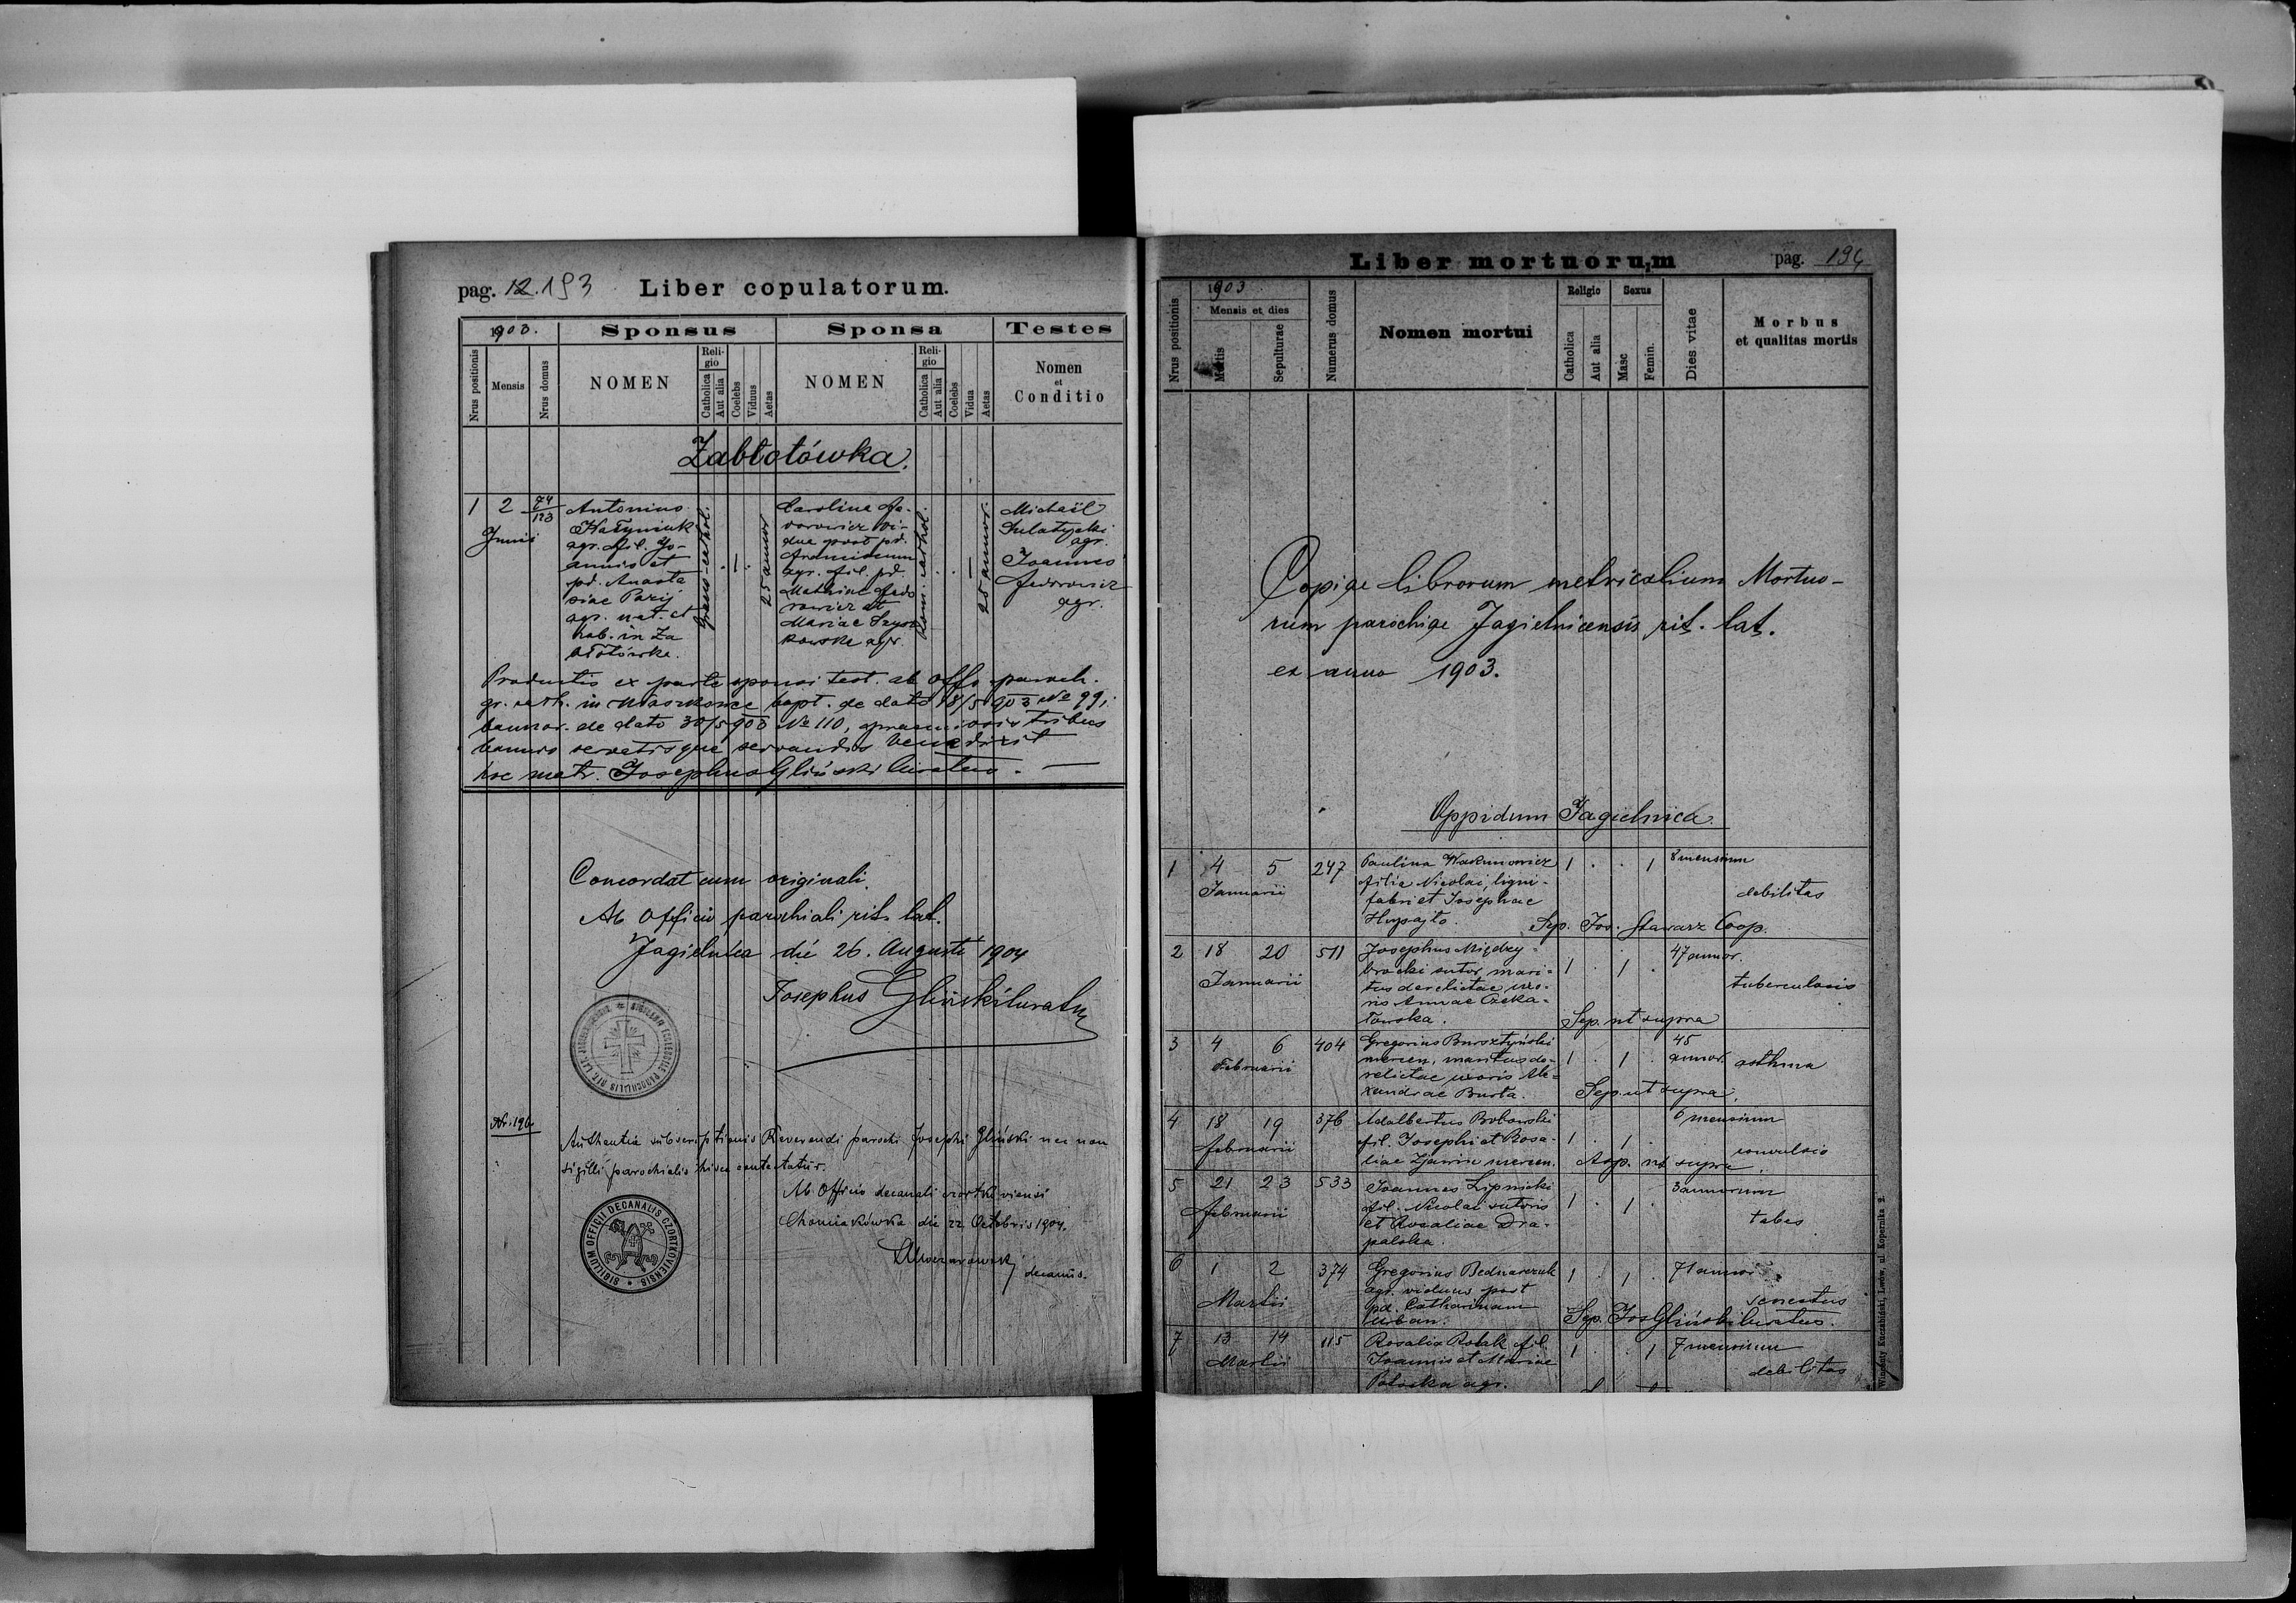 pag. 12. 193 Liber copulatorum.
1903. Sponsus Sponsa Testes
Nrus positionis
Mensis
Nrus domus
NOMEN
Religio
Catholica
Aut alia
Coelebs
Viduus
Aetas
NOMEN
Religio
Catholica
Aut alia
Coelebs
Vidua
Aetas
Nomen
et
Conditio
Zabłotówka.
1 2 74/123
Junii
Antonius
agr. fil. Jo-
annis et
pd. Anasta
siae Paryj
agr. nat. et
hab. in Za
błotówka.
25 annor
Carolina Fe-
dorowicz vi-
dua post pd.
agr. fil. pd.
Mathiae Fedo
rowicz et
Mariae
kowska agr.
25 annor.
Michaël
agr.
Joannes
Fedorowicz
agr.
Productis ex parte sponsi test. ab offo. paroch.
gr. cath. in bapt. de dato 18/5 903 No 99,
bannor. de dato 30/5 903 No 110, praemissis tribus
bannis servatisque servandis benedixit
hoc matr. Josephus Gliński Curatus. —
Concordat cum originali.
Ab Officio parochiali rit. lat.
Jagielnica die 26. Augusti 1904
Josephus Gliński Curatus
Authentia subscriptionis Reverendi parochi Josephi Gliński nec non
sigilli parochialis hisce contestatur.
Ab Officio decanali czortkoviensi
Chomiakówka die 22 Octobris 1904.
decanus.
SIGILLUM OFFICII DECANALIS CZORTKOVIENSIS
Liber mortuorum pag. 194
1903
Nrus positionis
Mensis et dies
Mortis
Sepulturae
Numerus domus
Nomen mortui
Religio
Catholica
Aut alia
Sexus
Masc
Femin.
Dies vitae
Morbus
et qualitas mortis
Copiae librorum metricalium Mortuo-
rum parochiae Jagielnicensis rit. lat.
ex anno 1903.
Oppidum Jagielnica.
1 4 5 247 Paulina 1 . . 1 8 mensium
Januarii filia Nicolai, ligni-
fabri et Josephae debilitas
Sep. Jos. Stawarz Coop.
2 18 20 511 Josephus Między- 1 . 1 . 47 annor.
Januarii brocki sutor, mari-
tus derelictae uxo- tuberculosis
ris Annae Czeka-
łowska. Sep. ut supra
3 4 6 404 Gregorius Bursztyński 1 . 1 . 45
Februarii mercen, maritus de- annor. asthma
relictae uxoris Ale-
xandrae Burta. Sep. ut supra.
4 18 19 376 Adalbertus Bobowski 1 . 1 . 6 mensium
Februarii fil. Josephi et Rosa- convulsio
liae mercen. Sep. ut supra.
5 21 23 533 Joannes Lipnicki 1 . 1 . 3 annorum
Februarii fil. Nicolai sutoris tabes
et Rosaliae Dra-
palska.
6 1 2 374 Gregorius Bednarczuk 1 . 1 . 71 annor.
Martii agr. viduus post senectus
pd. Catharinam
Urban. Sep. Jos Gliński Curatus.
7 13 14 115 Rosalia Rolak fil. 1 . . 1 7 mensium
Martii Joannis et Mariae debilitas
agr.
Wincenty Kuczabiński, Lwów, ul. Kopernika 2.